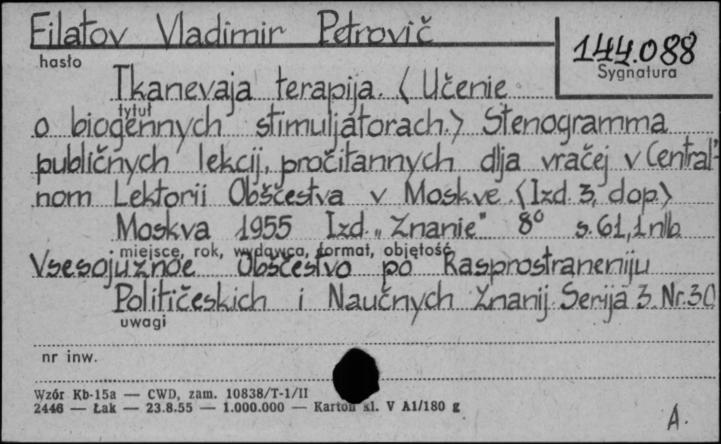 Filatov Vladimir Petrovič
hasło
144.088
Sygnatura
Tkanevaja terapija. (Učenie
tytuł
o biogennych stimuljatorach.) Stenogramma
publičnych lekcij, pročitannych dlja vračej v Central'
nom Lektorii Obščestva v Moskve. (Izd. 3, dop.)
Moskva 1955 Izd. „Znanie" 8° s. 61, 1 nlb.
miejsce, rok, wydawca, format, objętość
Vsesojuznoe Obščestvo po Rasprostraneniju
Političeskich i Naučnych Znanij. Serija 3. Nr. 30
uwagi
nr inw.
Wzór Kb-15a — CWD, zam. 10838/T-1/II
2446 — Łak — 23.8.55 — 1.000.000 — Karton kl. V A1/180 g
A.